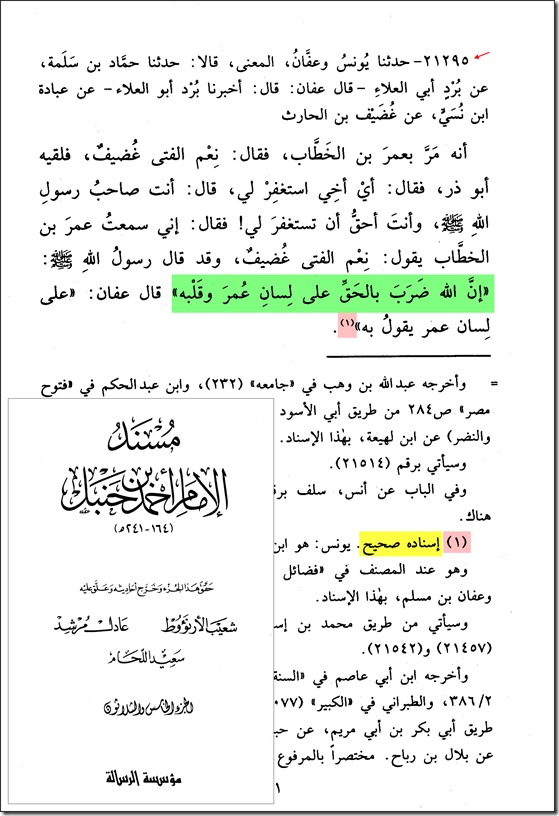 ٢١٢٩٥- حدثنا يُونسُ وعفَّانُ، المعنى، قالا: حدثنا حمَّاد بن سَلَمة،
عن بُرْدٍ أبي العلاءِ - قال عفان: قال: أخبرنا بُرْد أبو العلاء - عن عبادة
ابن نُسَيٍّ، عن غُضَيْف بن الحارث
أنه مَرَّ بعمرَ بن الخَطَّاب، فقال: نِعْم الفتى غُضيفٌ، فلقيه
أبو ذر، فقال: أيْ أخِي استغفِرْ لي، قال: أنت صاحبُ رسولِ
اللهِ ﷺ، وأنتَ أحقُّ أن تستغفرَ لي! فقال: إني سمعتُ عمرَ بن
الخطاب يقول: نِعْم الفتى غُضيفٌ، وقد قال رسولُ اللهِ ﷺ:
«إنَّ الله ضَرَبَ بالحَقِّ على لِسانِ عُمرَ وقَلْبه» قال عفان: «على
لِسان عمر يقولُ به»(١).
= وأخرجه عبد الله بن وهب في «جامعه» (٢٣٢)، وابن عبد الحكم في «فتوح
مصر» ص٢٨٤ من طريق أبي الأسود
والنضر) عن ابن لهيعة، بهٰذا الإسناد.
وسيأتي برقم (٢١٥١٤).
وفي الباب عن أنس، سلف
هناك.
(١) إسناده صحيح. يونس: هو ابن
وهو عند المصنف في «فضائل
وعفان بن مسلم، بهٰذا الإسناد.
وسيأتي من طريق محمد بن
(٢١٤٥٧) و(٢١٥٤٢).
وأخرجه ابن أبي عاصم في «السنة
٣٨٦/٢، والطبراني في «الكبير» (
طريق أبي بكر بن أبي مريم، عن
عن بلال بن رباح. مختصراً بالمرفوع
مُسْنَدُ
الإمام أحمد بن حنبل
(١٦٤-٢٤١ه)
حَقّق هذا الجزء وخرّج أحاديثه وعلّق عليه
شعيب الأرنؤوط عادل مرشد
سعيد اللحام
الجزء الخامس والثلاثون
مؤسسة الرسالة